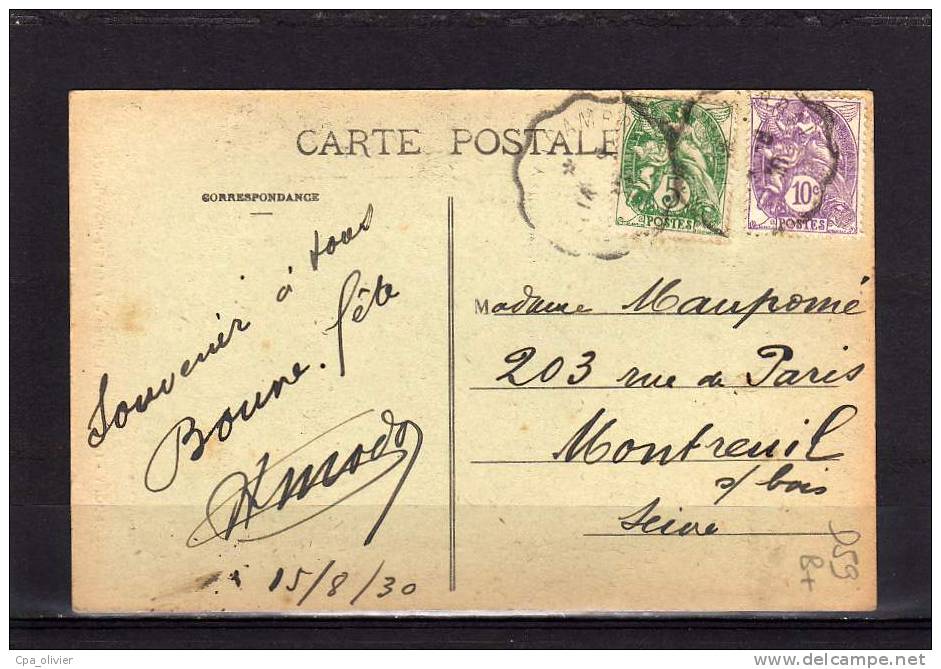 CARTE POSTALE
CORRESPONDANCE
5
POSTES
10c
POSTES
Souvenir à tous
Bonne fête
15/8/30
Madame Maupomé
203 rue de Paris
Montreuil
s/ bois
Seine
Cpa_olivier
www.delcampe.net